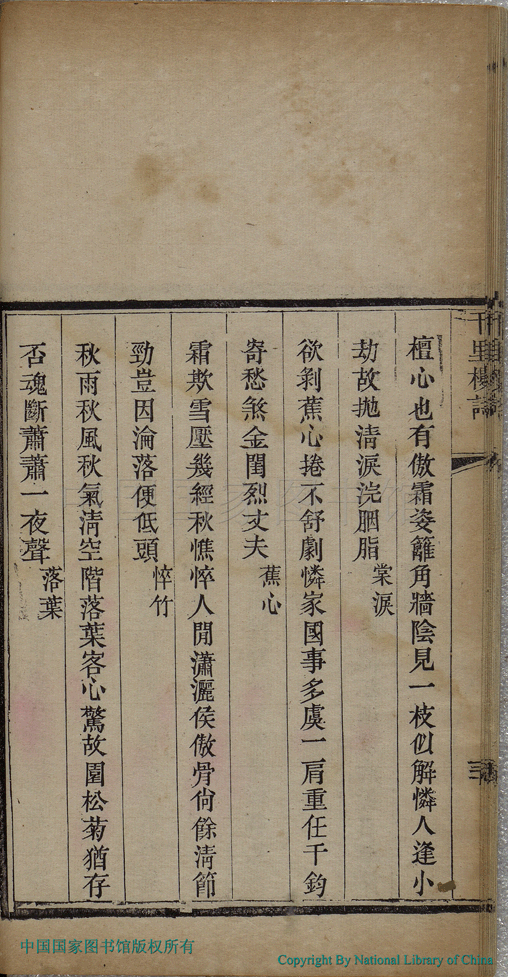 千里樓詩
檀心也有傲霜姿籬角牆陰見一枝似解憐人逢小
劫故拋淸淚浣胭脂 棠淚
欲剝蕉心捲不舒劇憐家國事多虞一肩重任千鈞
寄愁煞金閨烈丈夫 蕉心
霜欺雪壓幾經秋憔悴人閒瀟灑侯傲骨尙餘淸節
勁豈因淪落便低頭 悴竹
秋雨秋風秋氣淸空階落葉客心驚故園松菊猶存
否魂斷蕭蕭一夜聲 落葉
中国国家图书馆版权所有
Copyright By National Library of China